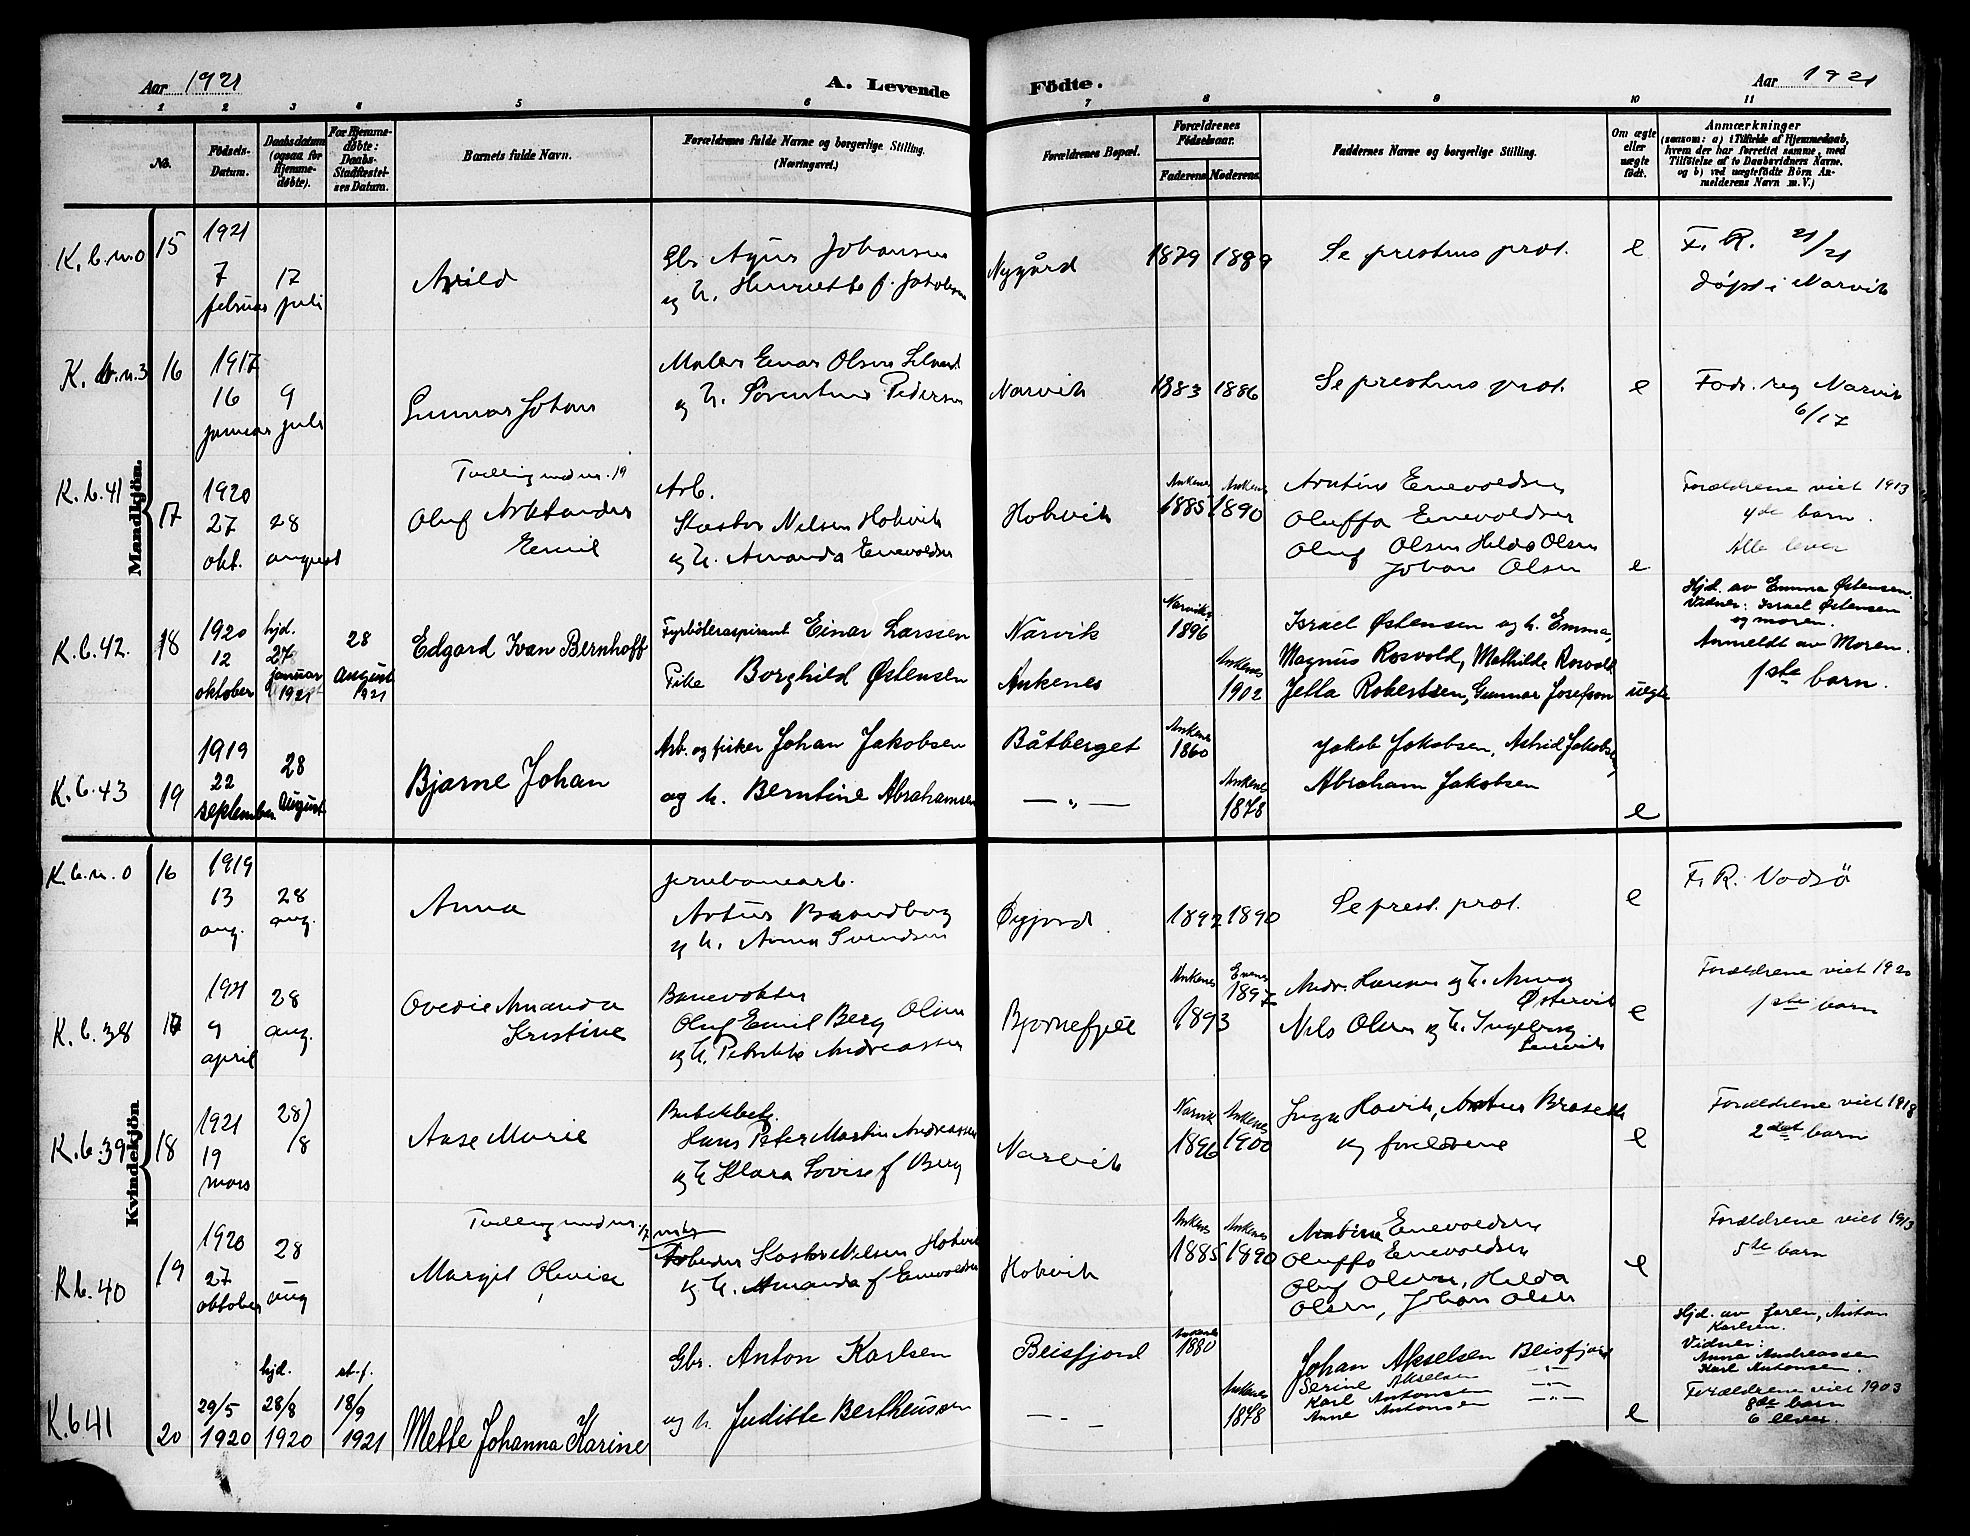 Aar 1921
A. Levende Födte.
Aar 1921
1 2 3 4 5 6 7 8 9 10 11
No.
Födsels-Datum.
Daabsdatum (ogsaa for Hjemme-døbte).
For Hjemme-døbte: Daabs-Stadfæstel-ses Datum.
Barnets fulde Navn.
Forældrenes fulde Navne og borgerlige Stilling. (Næringsvei.)
Forældrenes Bopæl.
Forældrenes Födselsaar.
Faderens Moderens
Faddernes Navne og borgerlige Stilling.
Om ægte eller uægte født.
Anmærkninger
(saasom: a) i Tilfælde af Hjemmedaab, hvem der har forrettet samme, med Tilföielse af to Daabsvidners Navne. og b) ved uægtefødte Börn An-melderens Navn m. V.)
Mandkjön.
K.b.n.0 15
1921
7 februar
17 juli
Arild
Gbr. Johansen
og h. Henriette f. Jakobsen
Nygård
1879 1889
Se prestens prot.
e
F. R. 21/21
døpt i Narvik
K.b.n.3 16
1917
16 januar
9 juli
Gunnar Johan
Maler Einar Olsen
og h. Sørentine Pedersen
Narvik
1883 1886
Se prestens prot.
e
Føds. reg Narvik
6/17
K.b.41 17
1920
27 okt.
28 august
Tvilling med nr. 19
Oluf
Emil
Arb.
Kastor Nilsen Hokvik
og h. Amanda Enevoldsen
Hokvik
Ankenes 1885
Ankenes 1890
Enevoldsen
Oluffa Enevoldsen
Oluf Olsen Hilda Olsen
Johan Olsen
e
Forældrene viet 1913
4de barn.
Alle lever
K.b.42. 18
1920
12 oktober
hjd. 27 januar 1921
28 August 1921
Edgard Ivan Bernhoff
Fyrbøteraspirant Einar Larssen
Pike Borghild Østensen
Narvik
Ankenes
Narvik 1896
Ankenes 1902
Israel Østensen og h. Emma,
Magnus Rosvold, Mathilde Rosvold
Jella Robertsen, Gunnar Josefson
uegte
Hjd. av Emma Østensen.
Vidner: Israel Østensen
og moren.
Anmeldt av Moren.
1ste barn.
K.b.43 19
1919
22 september
28 August
Bjarne Johan
Arb. og fisker Johan Jakobsen
og h. Berntine Abrahamsen
Båtberget
— „ —
Ankenes 1860
Ankenes 1878
Jakob Jakobsen, Astrid Jakobsen,
Abraham Jakobsen
e
Kvindekjön
K.b.n.0 16
1919
13 aug.
28 aug.
Anna
jernbanearb.
og h. Anna Svendsen
Øyjord
1892 1890
Se prest. prot.
e
F. R. Vadsö
K.b.38 17
1921
9 april
28 aug.
Ovedie Amanda
Kristine
Banevokter
Oluf Emil Berg Olsen
og h. Petrikke Andreassen
Bjørnefjell
Ankenes 1893
Evenes 1897
Andr. Larsen og h. Anna
Østervik
Nils Olsen og h. Ingeborg
e
Forældrene viet 1920
1ste barn
K.b.39 18
1921
19 mars
28/8
Aase Marie
Hans Peter Martin Andreassen
og h Klara Lovise f Berg
Narvik
Narvik 1896
Ankenes 1900
Inga Hovik,
og foreldrene
e
Forældrene viet 1918
2det barn
K.b.40 19
1920
27 oktober
28 aug
Tvilling med nr. 17
Margit Olevise
Arbeider Kastor Nilsen Hokvik
og h. Amanda f Enevoldsen
Hokvik
Ankenes 1885
Ankenes 1890
Enevoldsen
Oluffa Enevoldsen
Oluf Olsen, Hilda
Olsen, Johan Olsen
e
Forældrene viet 1913
5te barn
K.b.41 20
29/5 1920
hjd. 28/8 1920
st.f. 18/9 1921
Mette Johanna Karine
Gbr. Anton Karlsen
og h Juditte Bertheussen
Beisfjord
— „ —
Ankenes 1880
Ankenes 1878
Johan Akselsen Beisfjord
Serine Akselsen — „ —
Karl Antonsen — „ —
Anne Antonsen — „ —
e
Hjd. av faren, Anton
Karlsen.
Vidner:
Anna Andreassen
Karl Antonsen.
Forældrene viet 1903
8de barn
6 lever.